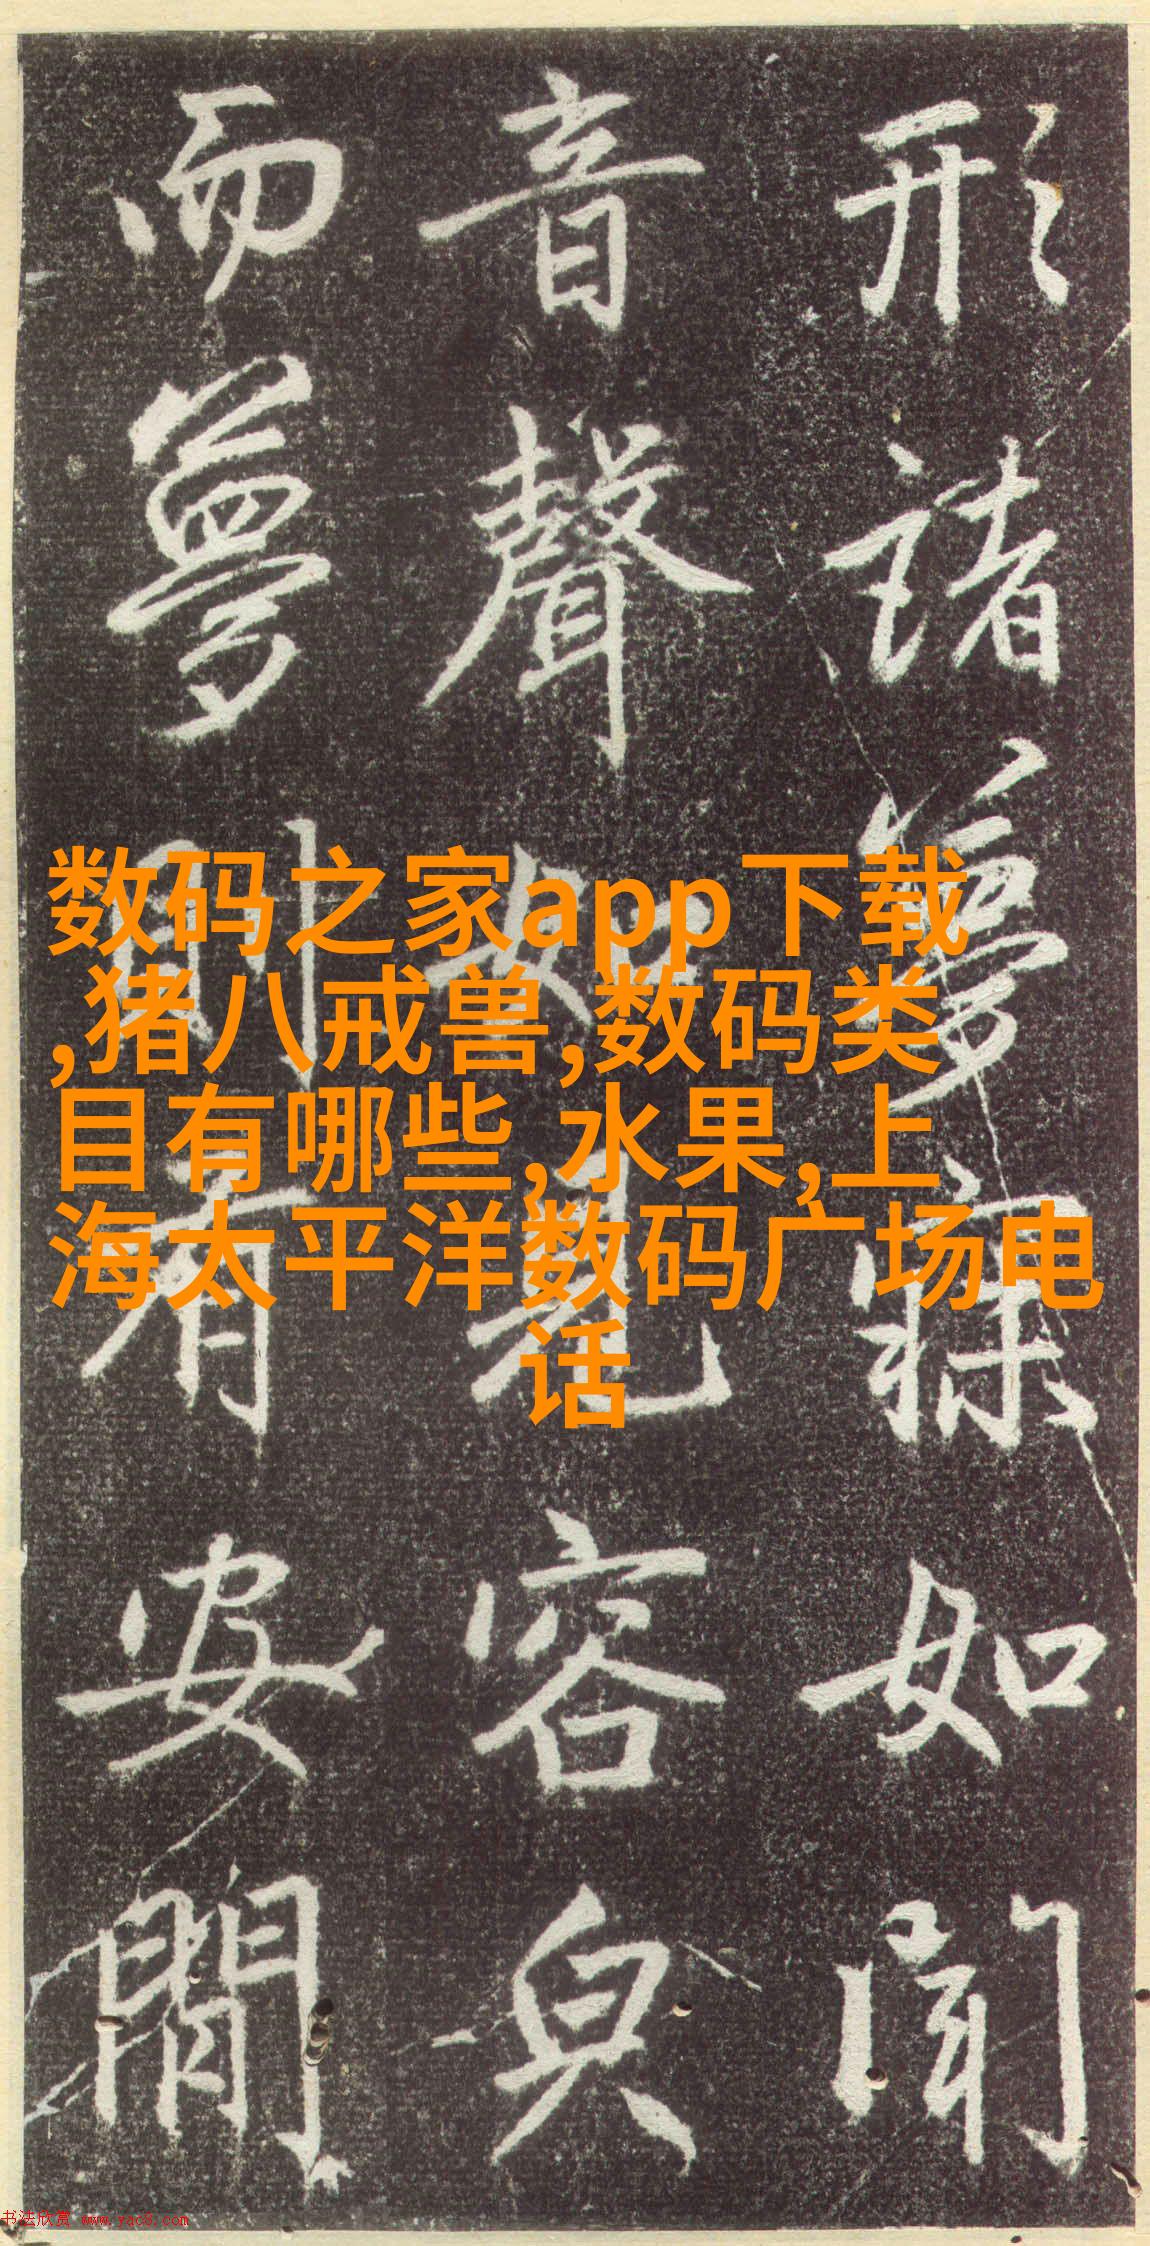 形諸夢寐如聞
音聲如見容皃
而夢則有安閒
数码之家app下载
,猪八戒兽,数码类
目有哪些,水果,上
海太平洋数码广场电
话
书法欣赏 www.yac8.com